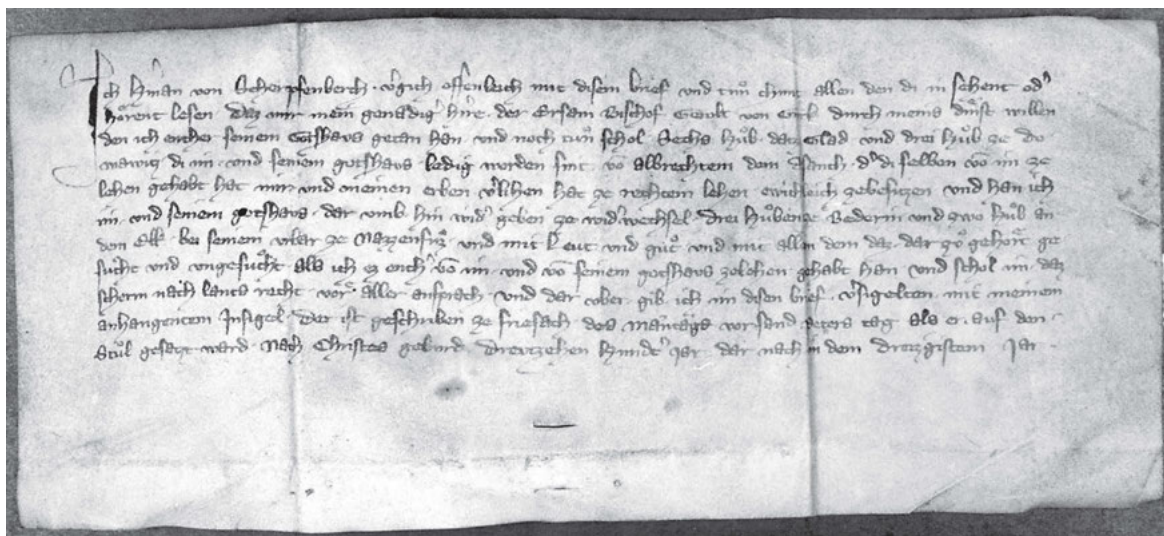 Ich H'man von Scherpfenberch v'gich offenleich mit disem brief und tůn chunt allen den di in sehent od'
hőrent lesen Daz mir mein genadig' h're der Ersam Bischof von durch meins dinst willen
den ich und seinem Gotshaus getan han und noch tůn schol Sechs hůb datz Glad und drei hůb ze
di im und seinem gotshaus ledig worden sint võ albrechtem dem di selben võ im ze
lehen gehabt hat mir und meinen erben v'lihen hat ze rechtem lehen ewichleich ze besitzen und han ich
im und seinem gotshaus dar umb hin wid' geben ze wid'wechsel drei hůben ze Bederin und zwo hůb an
dem bei seinem urbar ze und mit leut und gůt und mit allen dem daz dar zů gehört ge
sůcht und ungesůcht als ich ez võ im und võ seinem gotshaus ze lehen gehabt han und schol im daz
scherm nach lants recht vor aller ansprach und dar uber gib ich im disen brief v'sigelten mit meinem
anhangentem Insigel Der ist geschriben ze Friesach des Mãntags vor sand Peters tag als er auf den
Stůl gesatzt ward Nach Christes geburd Drevtzehen Hundt' jar dar nach in dem Dreizgistem Jar